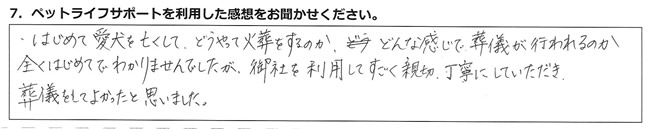 7. ペットライフサポートを利用した感想をお聞かせください。
・はじめて愛犬を亡くして、どうやって火葬をするのか、どんな感じで葬儀が行われるのか
全くはじめてでわかりませんでしたが、御社を利用してすごく親切、丁寧にしていただき、
葬儀をしてよかったと思いました。